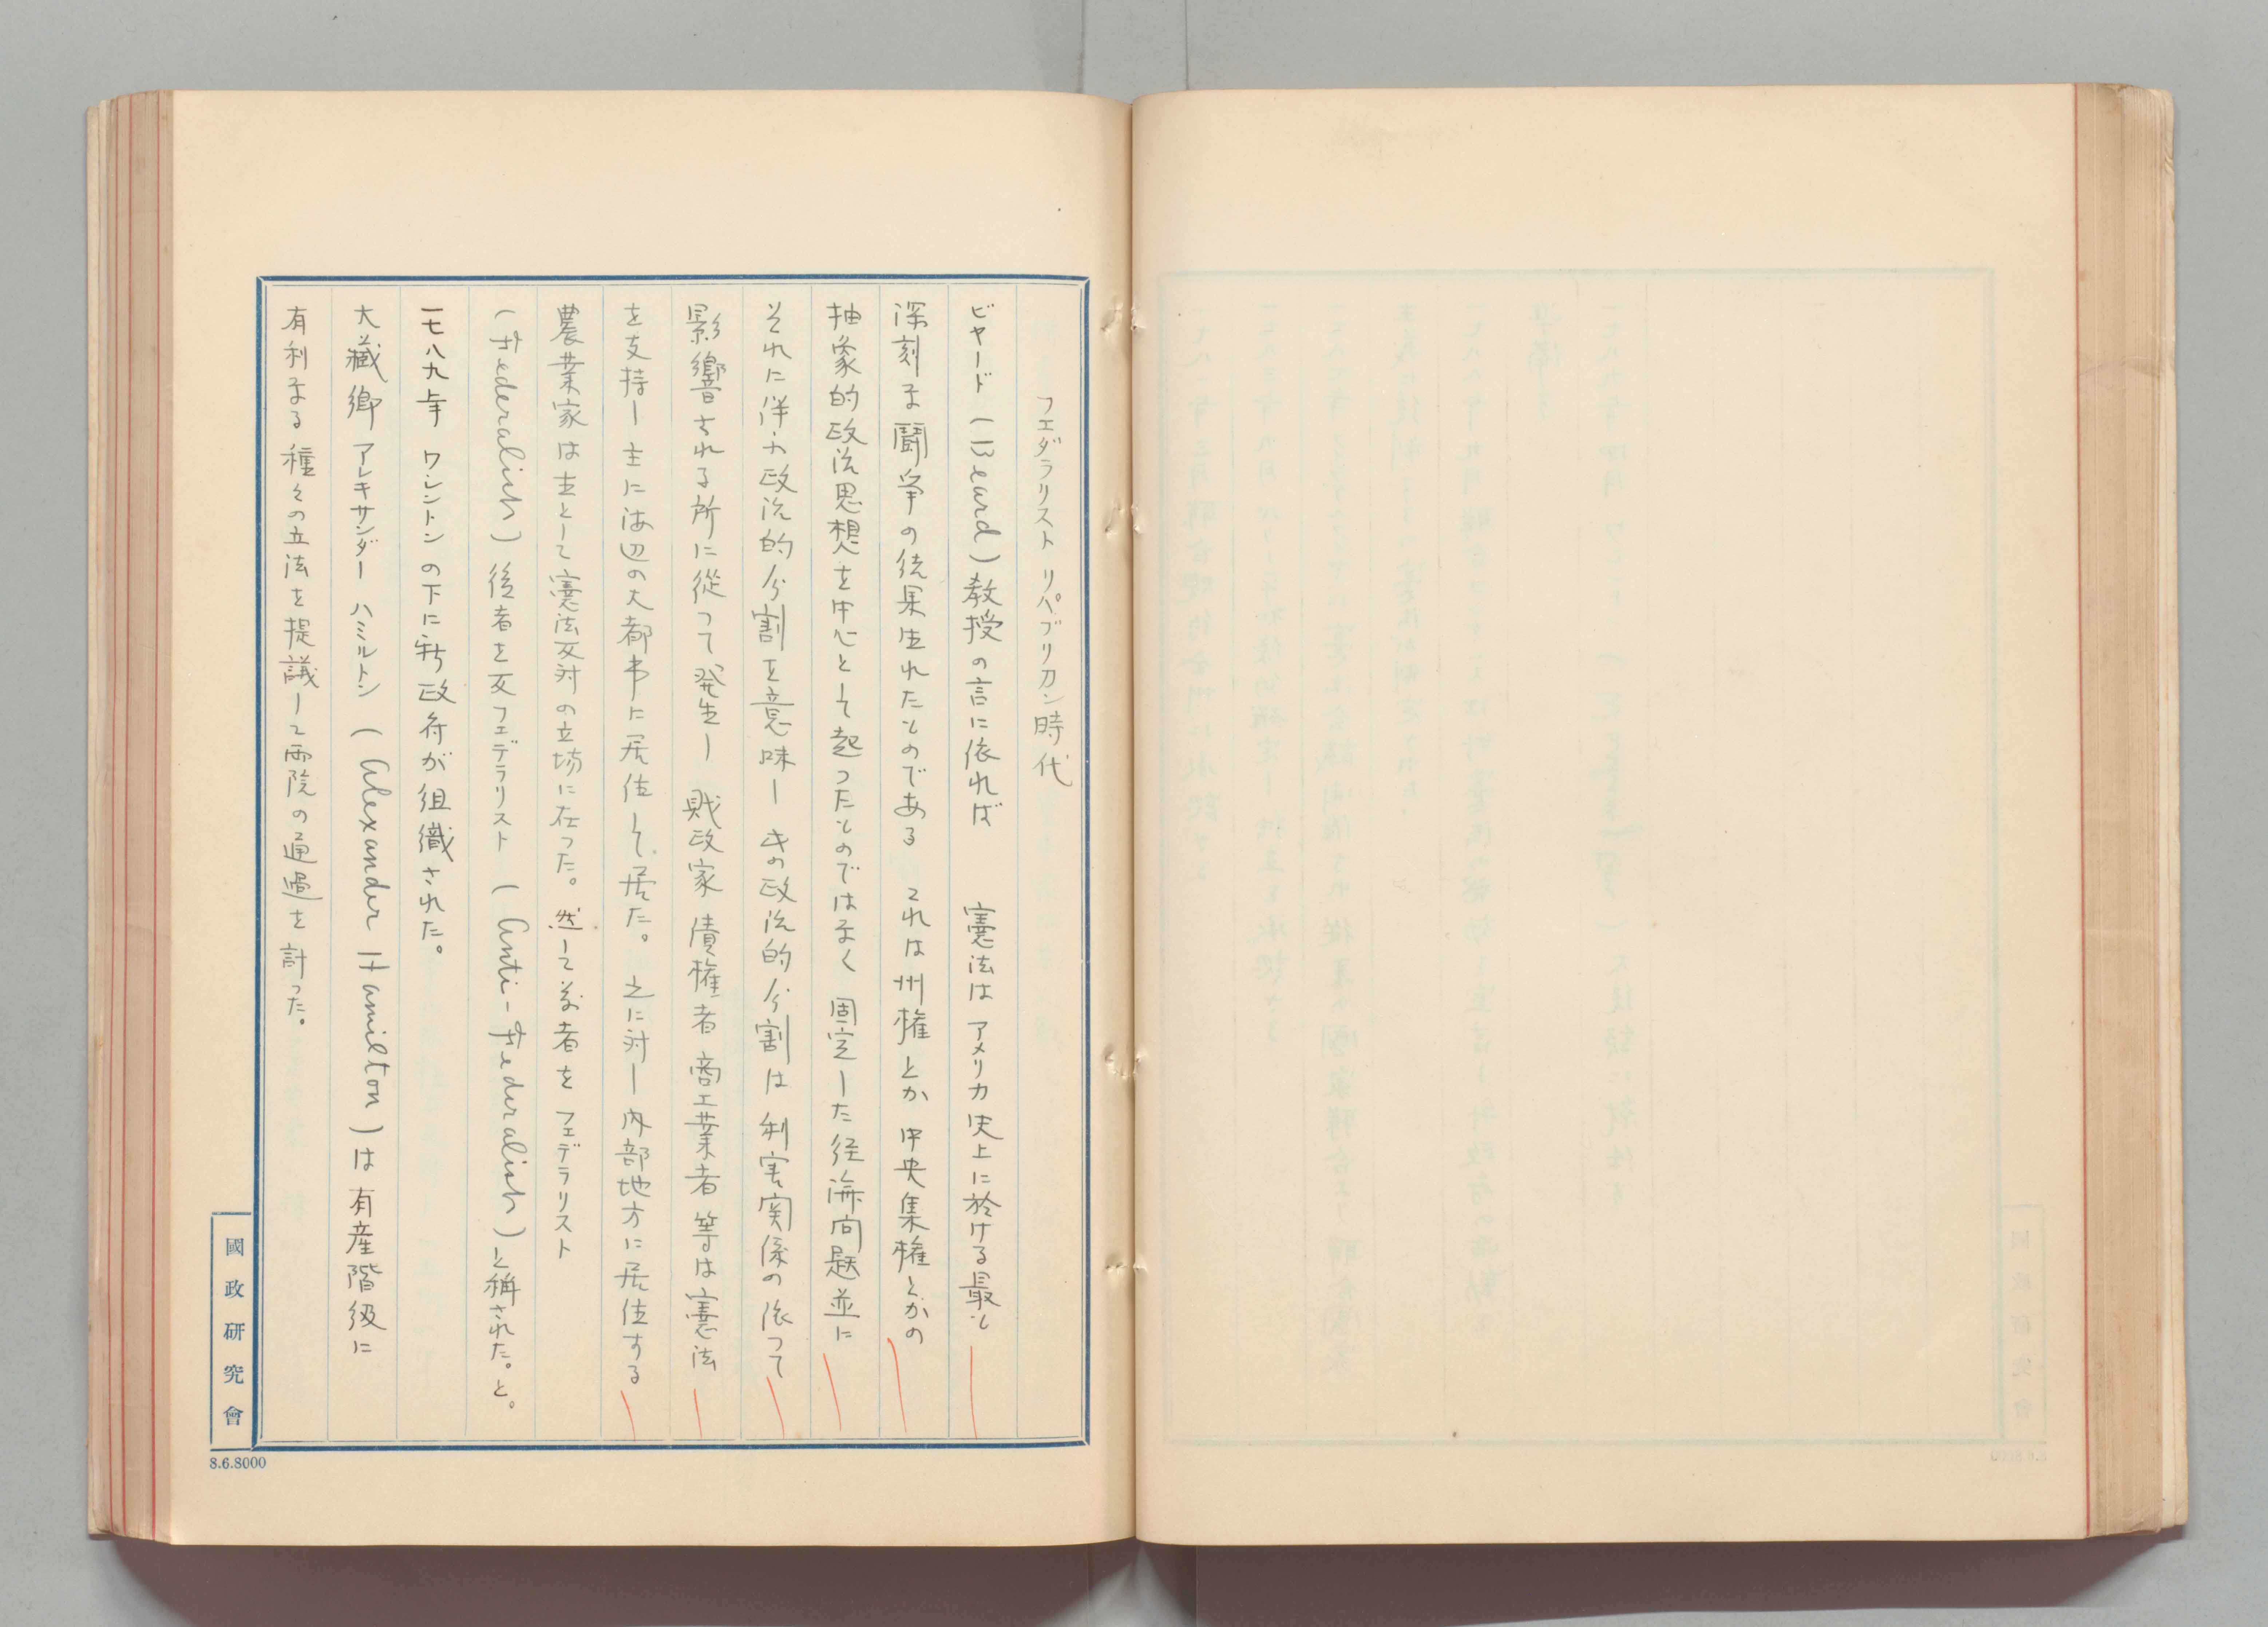 フエダラリスト リパブリカン時代
ビヤード（Beard）教授の言に依れば 憲法は アメリカ史上に於ける最も
深刻な闘争の結果生れたものである これは州権とか 中央集権とかの
抽象的政治思想を中心として起つたものではなく 固定した経済問題並に
それに伴ふ政治的分割を意味し その政治的分割は利害関係の依つて
影響される所に従つて発生し 財政家 債権者 商工業者等は憲法
を支持し 主に海辺の大都市に居住して居た。之に対し 内部地方に居住する
農業家は主として憲法反対の立場に在つた。然して前者をフェデラリスト
（Federalist）後者を反フェデラリスト（Anti-Federalist）と稱された。と。
一七八九年 ワシントンの下に新政府が組織された。
大藏卿 アレキサンダー ハミルトン（Alexander Hamilton）は有産階級に
有利なる種々の立法を提議して両院の通過を計つた。
國政研究會
8.6.8000